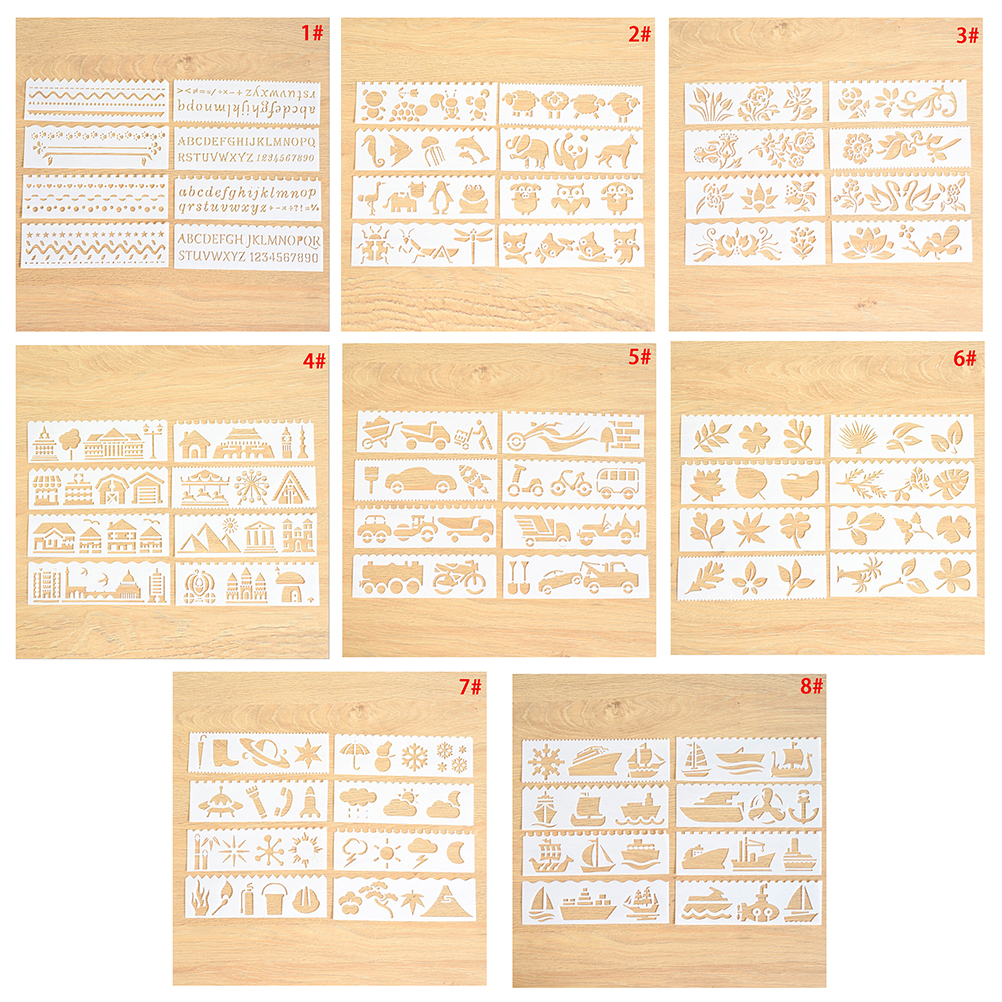 1#
rstuvwxyz
abcdefghijklmnopq
ABCDEFGHIJKLMNOPQ
RSTUVWXYZ 1234567890
abcdefghijklmnop
qrstuvwxyz
ABCDEFGH JKLMNOPQR
STUVWXYZ 1234567890
2#
3#
4#
5#
6#
7#
8#